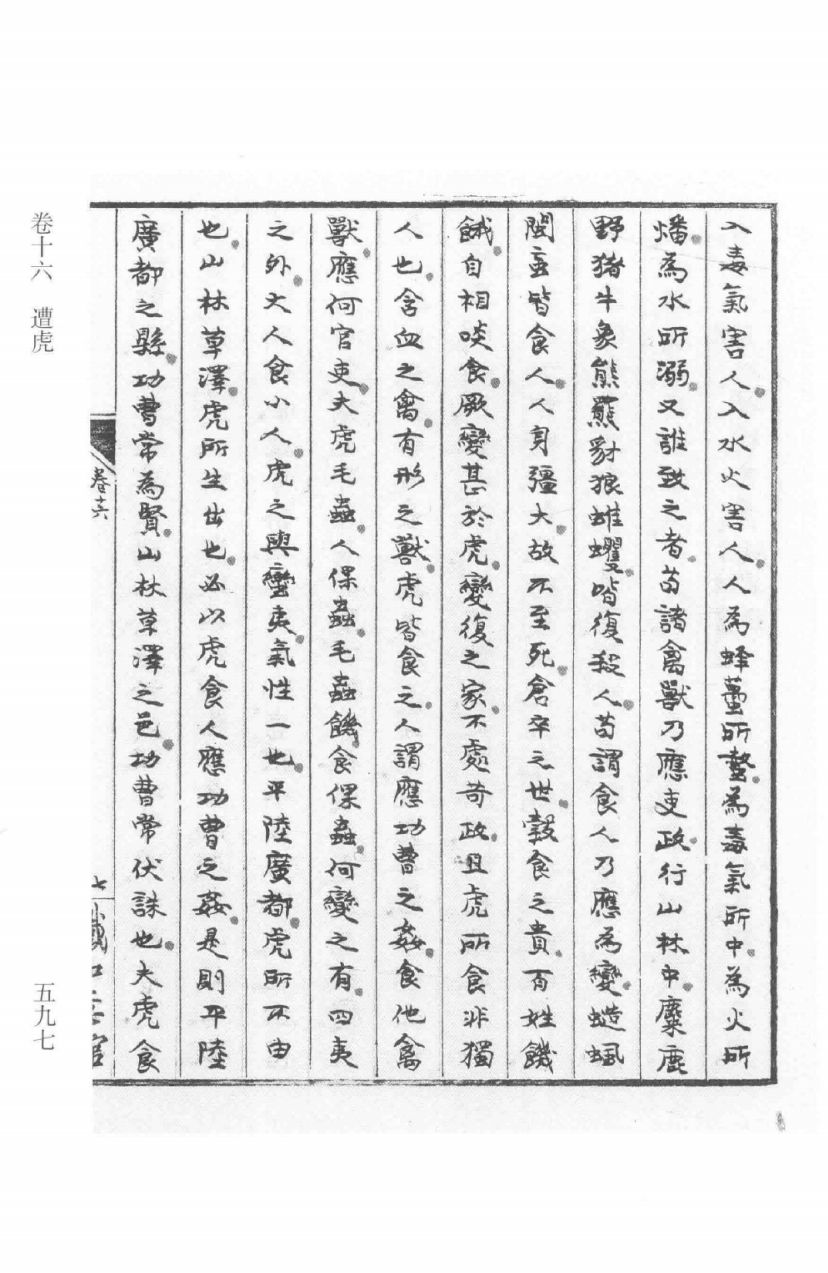 入毒氣害人入水火害人人為蜂蠆所螫為毒氣所中為火所
燔為水所溺又誰致之者苟諸禽獸乃應吏政行山林中麋鹿
野豬牛象熊羆豺狼蜼蠼皆復殺人苟謂食人乃應為變蚤蝨
閩䖟皆食人人身彊大故不至死倉卒之世穀食之貴百姓饑
餓自相啖食厥變甚於虎變復之家不處苛政且虎所食非獨
人也含血之禽有形之獸虎皆食之人謂應功曹之姦食他禽
獸應何官吏夫虎毛蟲人倮蟲毛蟲饑食倮蟲何變之有四夷
之外大人食小人虎之與蠻夷氣性一也平陸廣都虎所不由
也山林草澤虎所生出也必以虎食人應功曹之姦是則平陸
廣都之縣功曹常為賢山林草澤之邑功曹常伏誅也夫虎食
卷十六
七
卷十六 遭虎
五九七